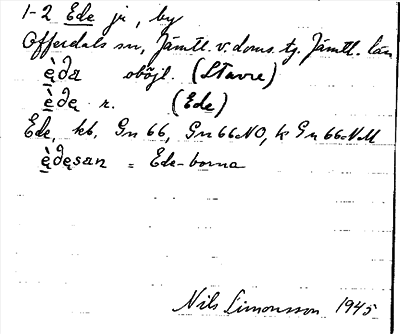 1-2 Ede jr, by
Offerdals sn, Jämtl. v. doms. tg. Jämtl. län
ę̀da oböjl. (Stavre)
ę̀dę r. (Ede)
Ede, kb. Gn 66, Gn 66 NO, k Gn 66 NM
ę̀dęsan = Ede-borna
Nils Simonsson 1945